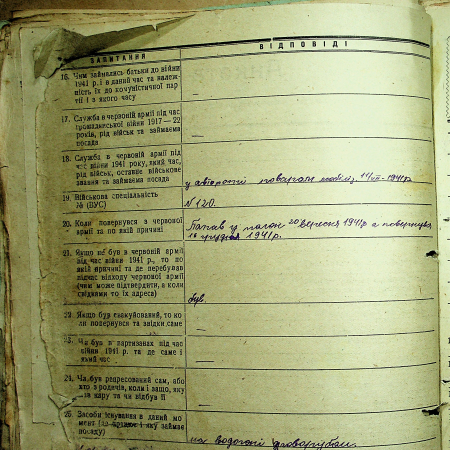 ЗАПИТАННЯ
ВІДПОВІДІ
16. Чим займались батьки до війни
1941 р. і в даний час та належ-
ність їх до комуністичної пар-
тії і з якого часу
—
17. Служба в червоній армії під час
громадянської війни 1917—22
років, рід військ та займаєма
посада
—
18. Служба в червоній армії під
час війни 1941 року, який час,
рід військ, останнє військове
звання та займаєма посада
у авіороті поваром
1941 р
19. Військова спеціальність
№ (ВУС)
N 120.
20. Коли повернувся з червоної
армії та по якій причині
Попав у полон 20 вересня 1941 р а повернувся
16 грудня 1941 р.
21. Якщо не був в червоній армії
під час війни 1941 р., то по
якій причині та де перебував
підчас відходу червоної армії
(чим може підтвердити, а коли
свідками то їх адреса)
був.
22. Якщо був евакуйований, то ко-
ли повернувся та звідки саме
—
23. Чи був в партизанах під час
війни 1941 р. та де саме і
який час
—
24. Чи був репресований сам, або
хто з родичів, коли і защо, яку
мав кару та чи відбув її
—
25. Засоби існування в даний мо-
мент (де працює і яку займає
посаду)
на водогоні